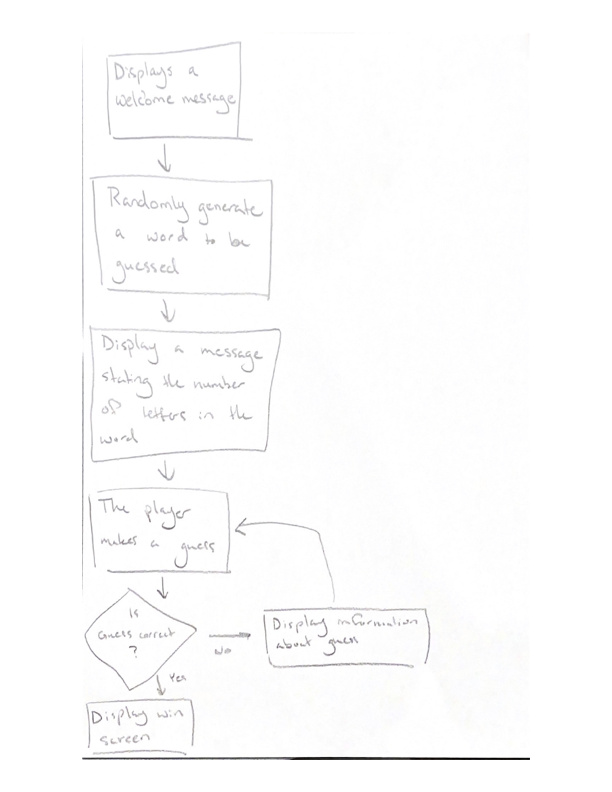 Displays a
welcome message
Randomly generate
a word to be
guessed
Display a message
stating the number
of letters in the
word
The player
makes a guess
Is
Guess correct
?
No
Display information
about guess
Yes
Display win
screen